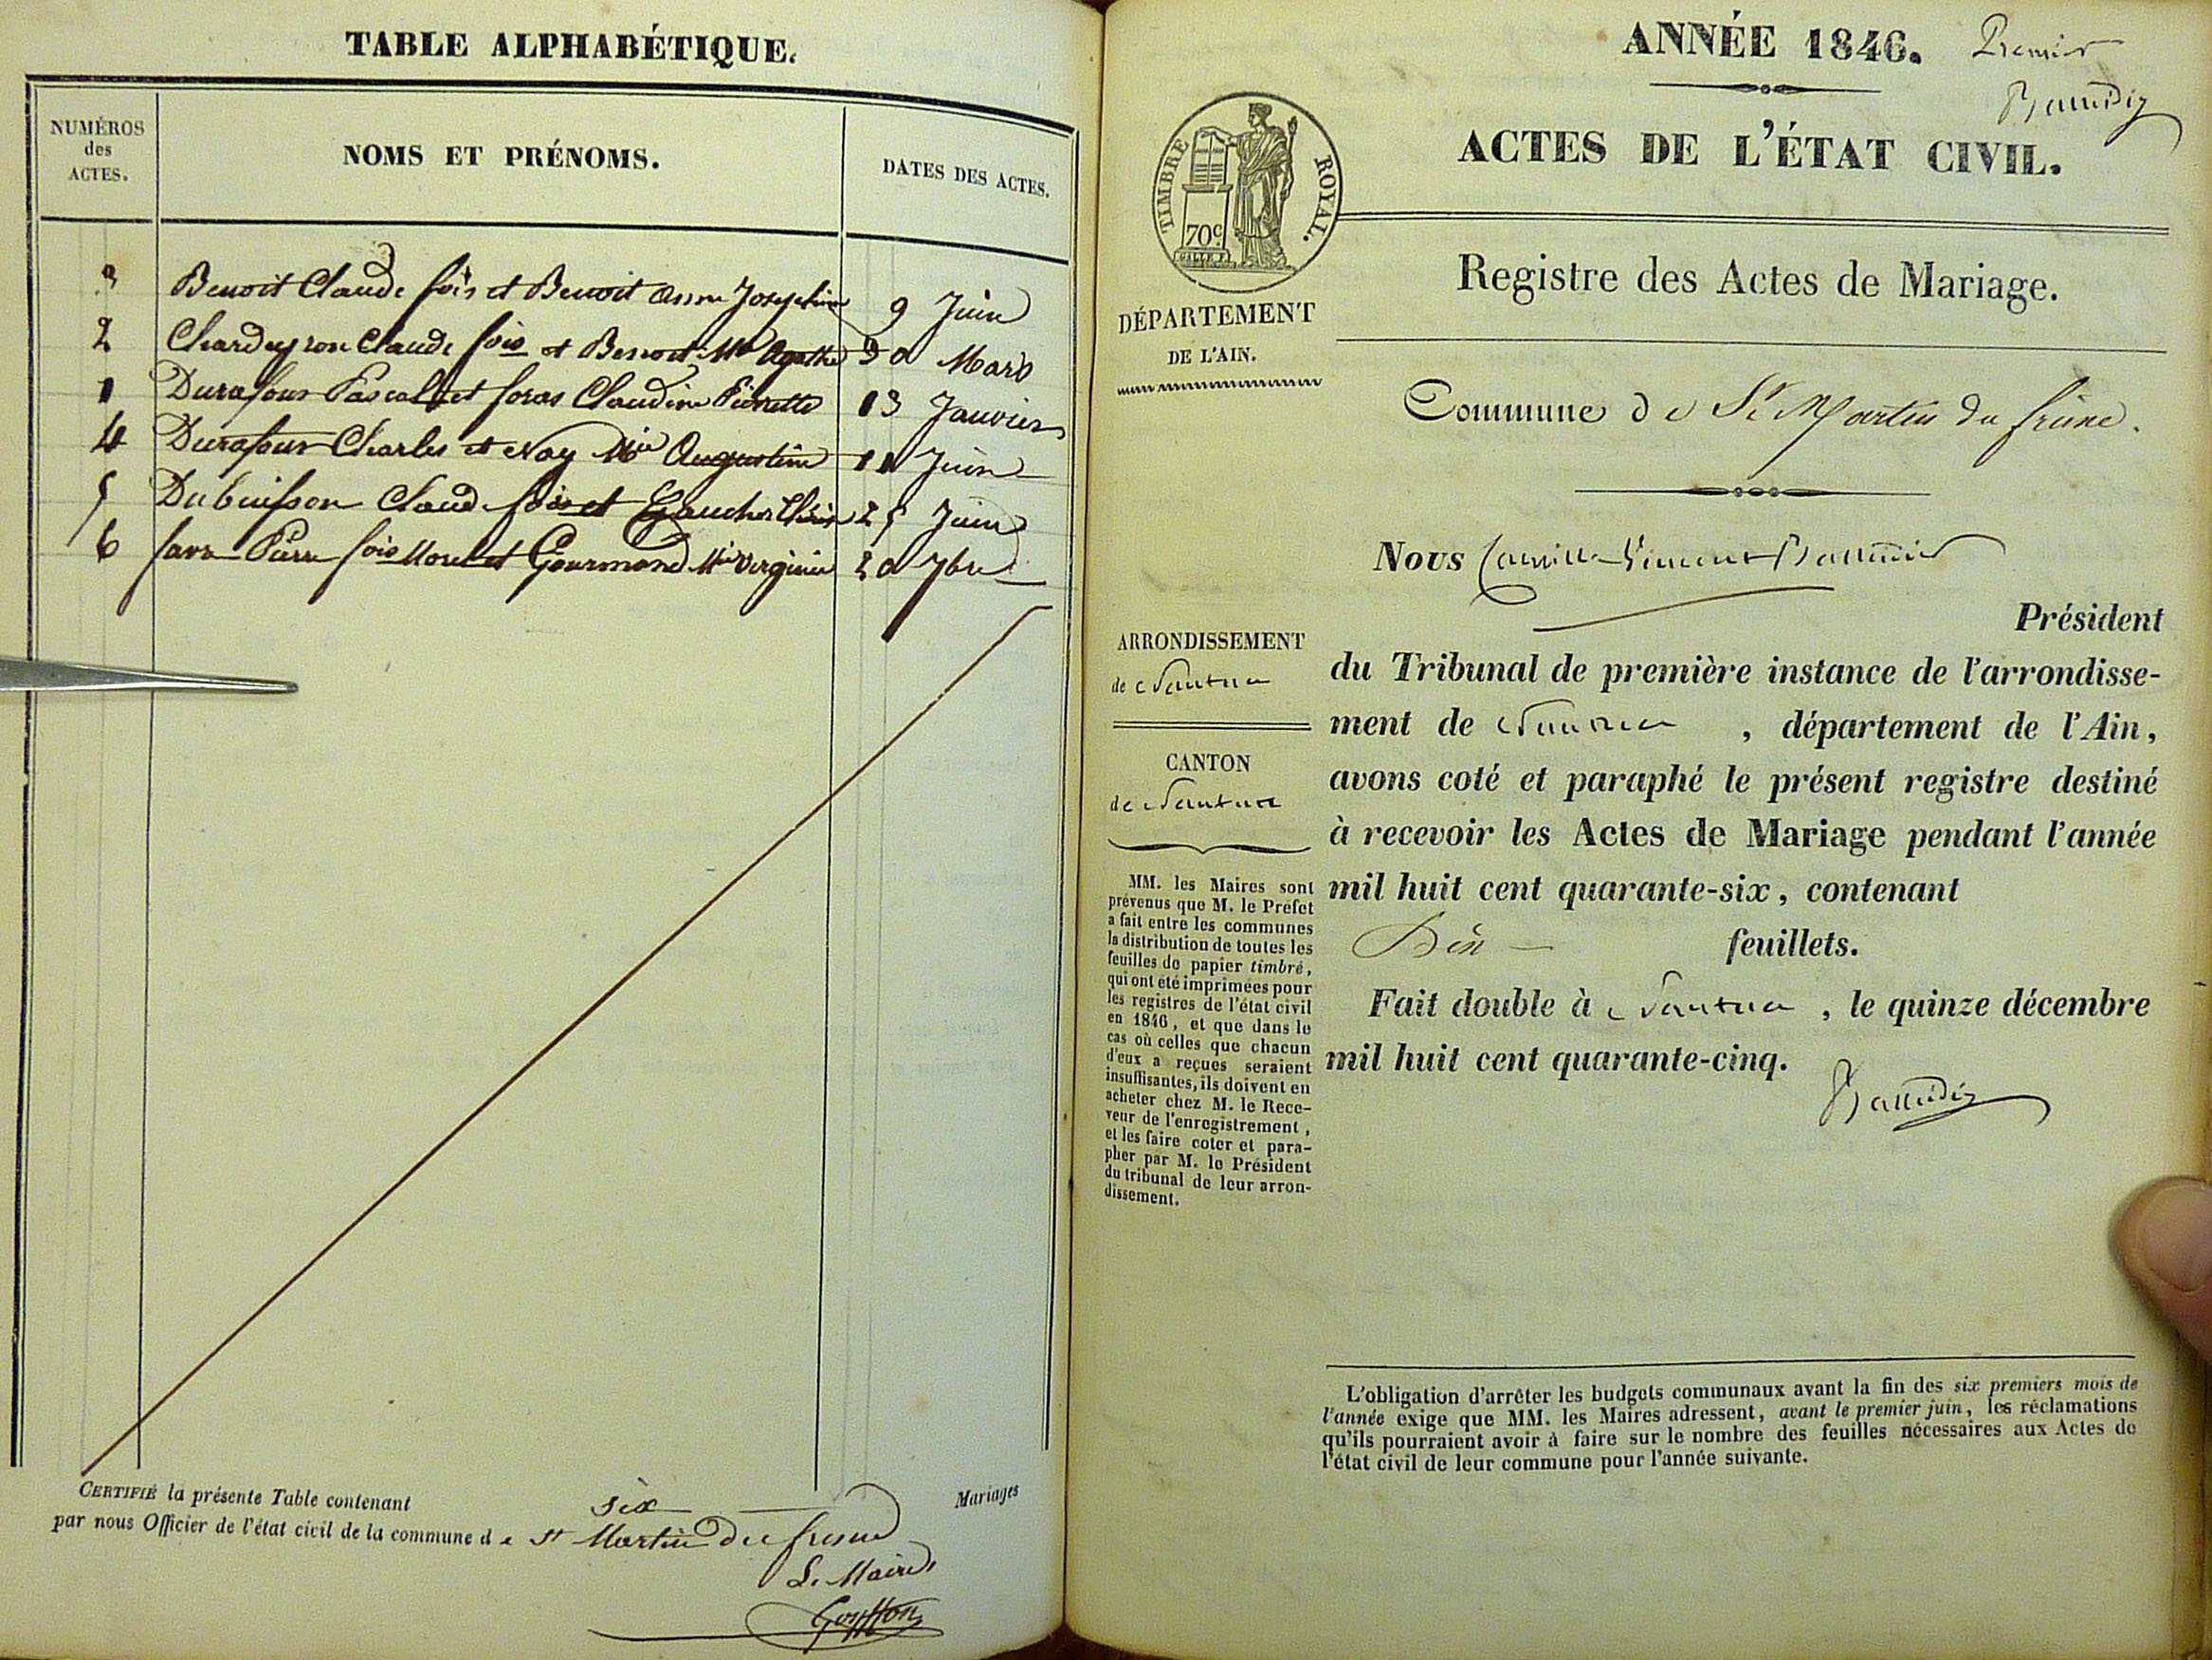 TABLE ALPHABÉTIQUE.
NUMÉROS
des
ACTES.
NOMS ET PRÉNOMS.
DATES DES ACTES.
3 Benoit Claude fois et Benoit Anne Josephine 9 Juin
2 Chardeyron Claude fois et Benoit Mie Agathe 30 Mars
1 Durafour Pascal et foras Claudine Pierrette 13 Janvier
4 Durafour Charles et Nay Mie Augustine 11 Juin
5 Dubuisson Claude fois et Gaucher 25 Juin
6 favre Pierre fois Morel et Gourmand Mie Virginie 20 7bre
CERTIFIÉ la présente Table contenant six Mariages
par nous Officier de l'état civil de la commune de St Martin du fresne
Le Maire
ANNÉE 1846. Premier
ACTES DE L'ÉTAT CIVIL.
TIMBRE ROYAL.
70c
Registre des Actes de Mariage.
DÉPARTEMENT
DE L'AIN.
Commune de St Martin du frêne.
Nous Camille Vincent
Président
ARRONDISSEMENT
de Nantua
du Tribunal de première instance de l'arrondisse-
ment de Nantua, département de l'Ain,
CANTON
de Nantua
avons coté et paraphé le présent registre destiné
à recevoir les Actes de Mariage pendant l'année
mil huit cent quarante-six, contenant
Dix feuillets.
Fait double à Nantua, le quinze décembre
mil huit cent quarante-cinq.
MM. les Maires sont
prévenus que M. le Préfet
a fait entre les communes
la distribution de toutes les
feuilles de papier timbré,
qui ont été imprimées pour
les registres de l'état civil
en 1846, et que dans le
cas où celles que chacun
d'eux a reçues seraient
insuffisantes, ils doivent en
acheter chez M. le Rece-
veur de l'enregistrement,
et les faire coter et para-
pher par M. le Président
du tribunal de leur arron-
dissement.
L'obligation d'arrêter les budgets communaux avant la fin des six premiers mois de
l'année exige que MM. les Maires adressent, avant le premier juin, les réclamations
qu'ils pourraient avoir à faire sur le nombre des feuilles nécessaires aux Actes de
l'état civil de leur commune pour l'année suivante.